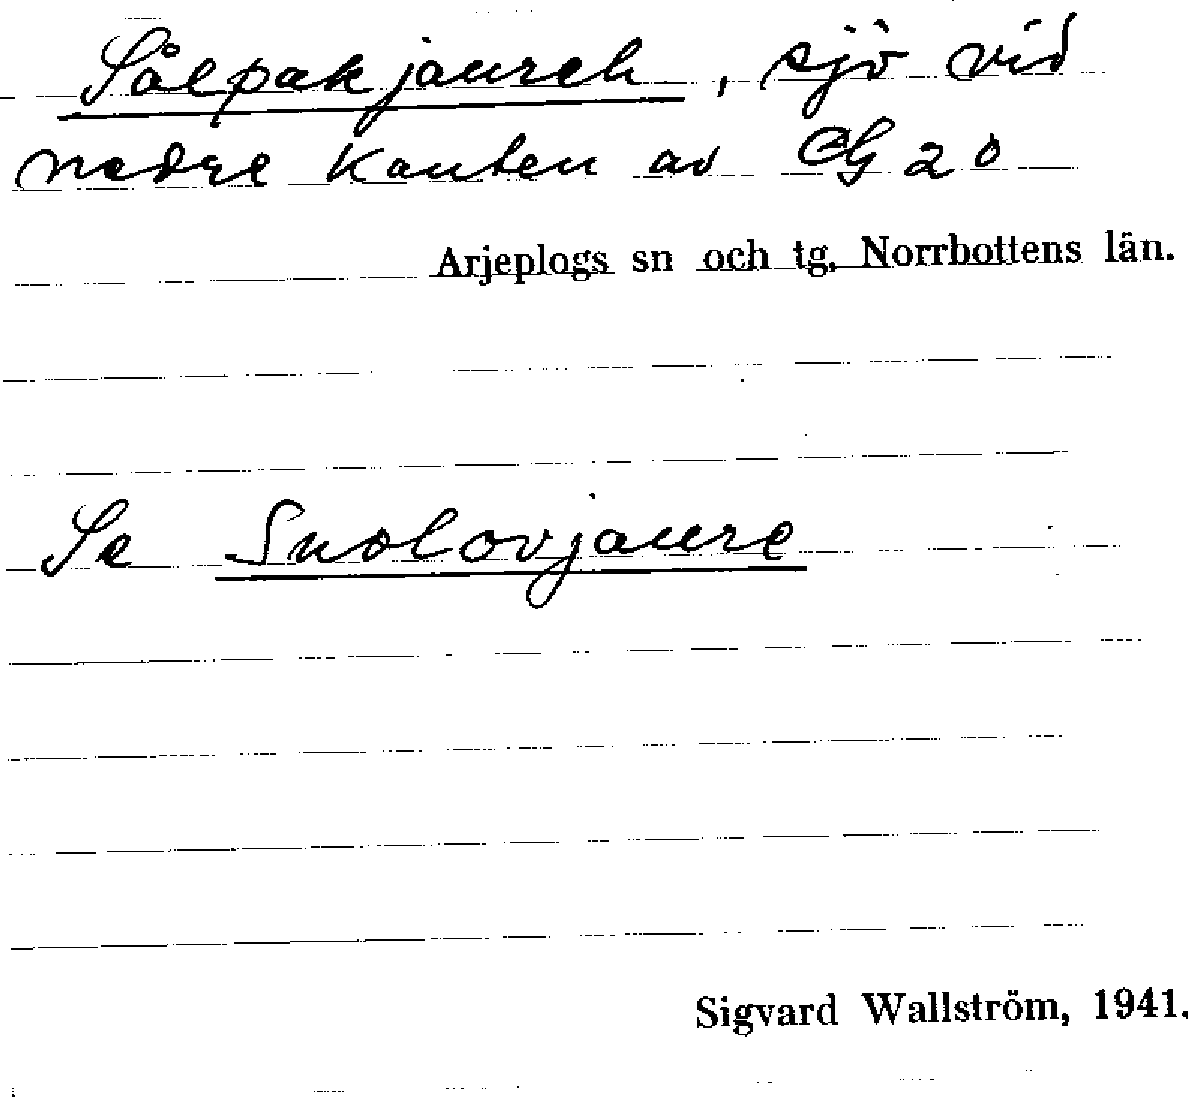 Sålpakjaureh, sjö vid
nedre kanten av CG 20
Arjeplogs sn och tg, Norrbottens län.
Se Snolovjaure
Sigvard Wallström, 1941.